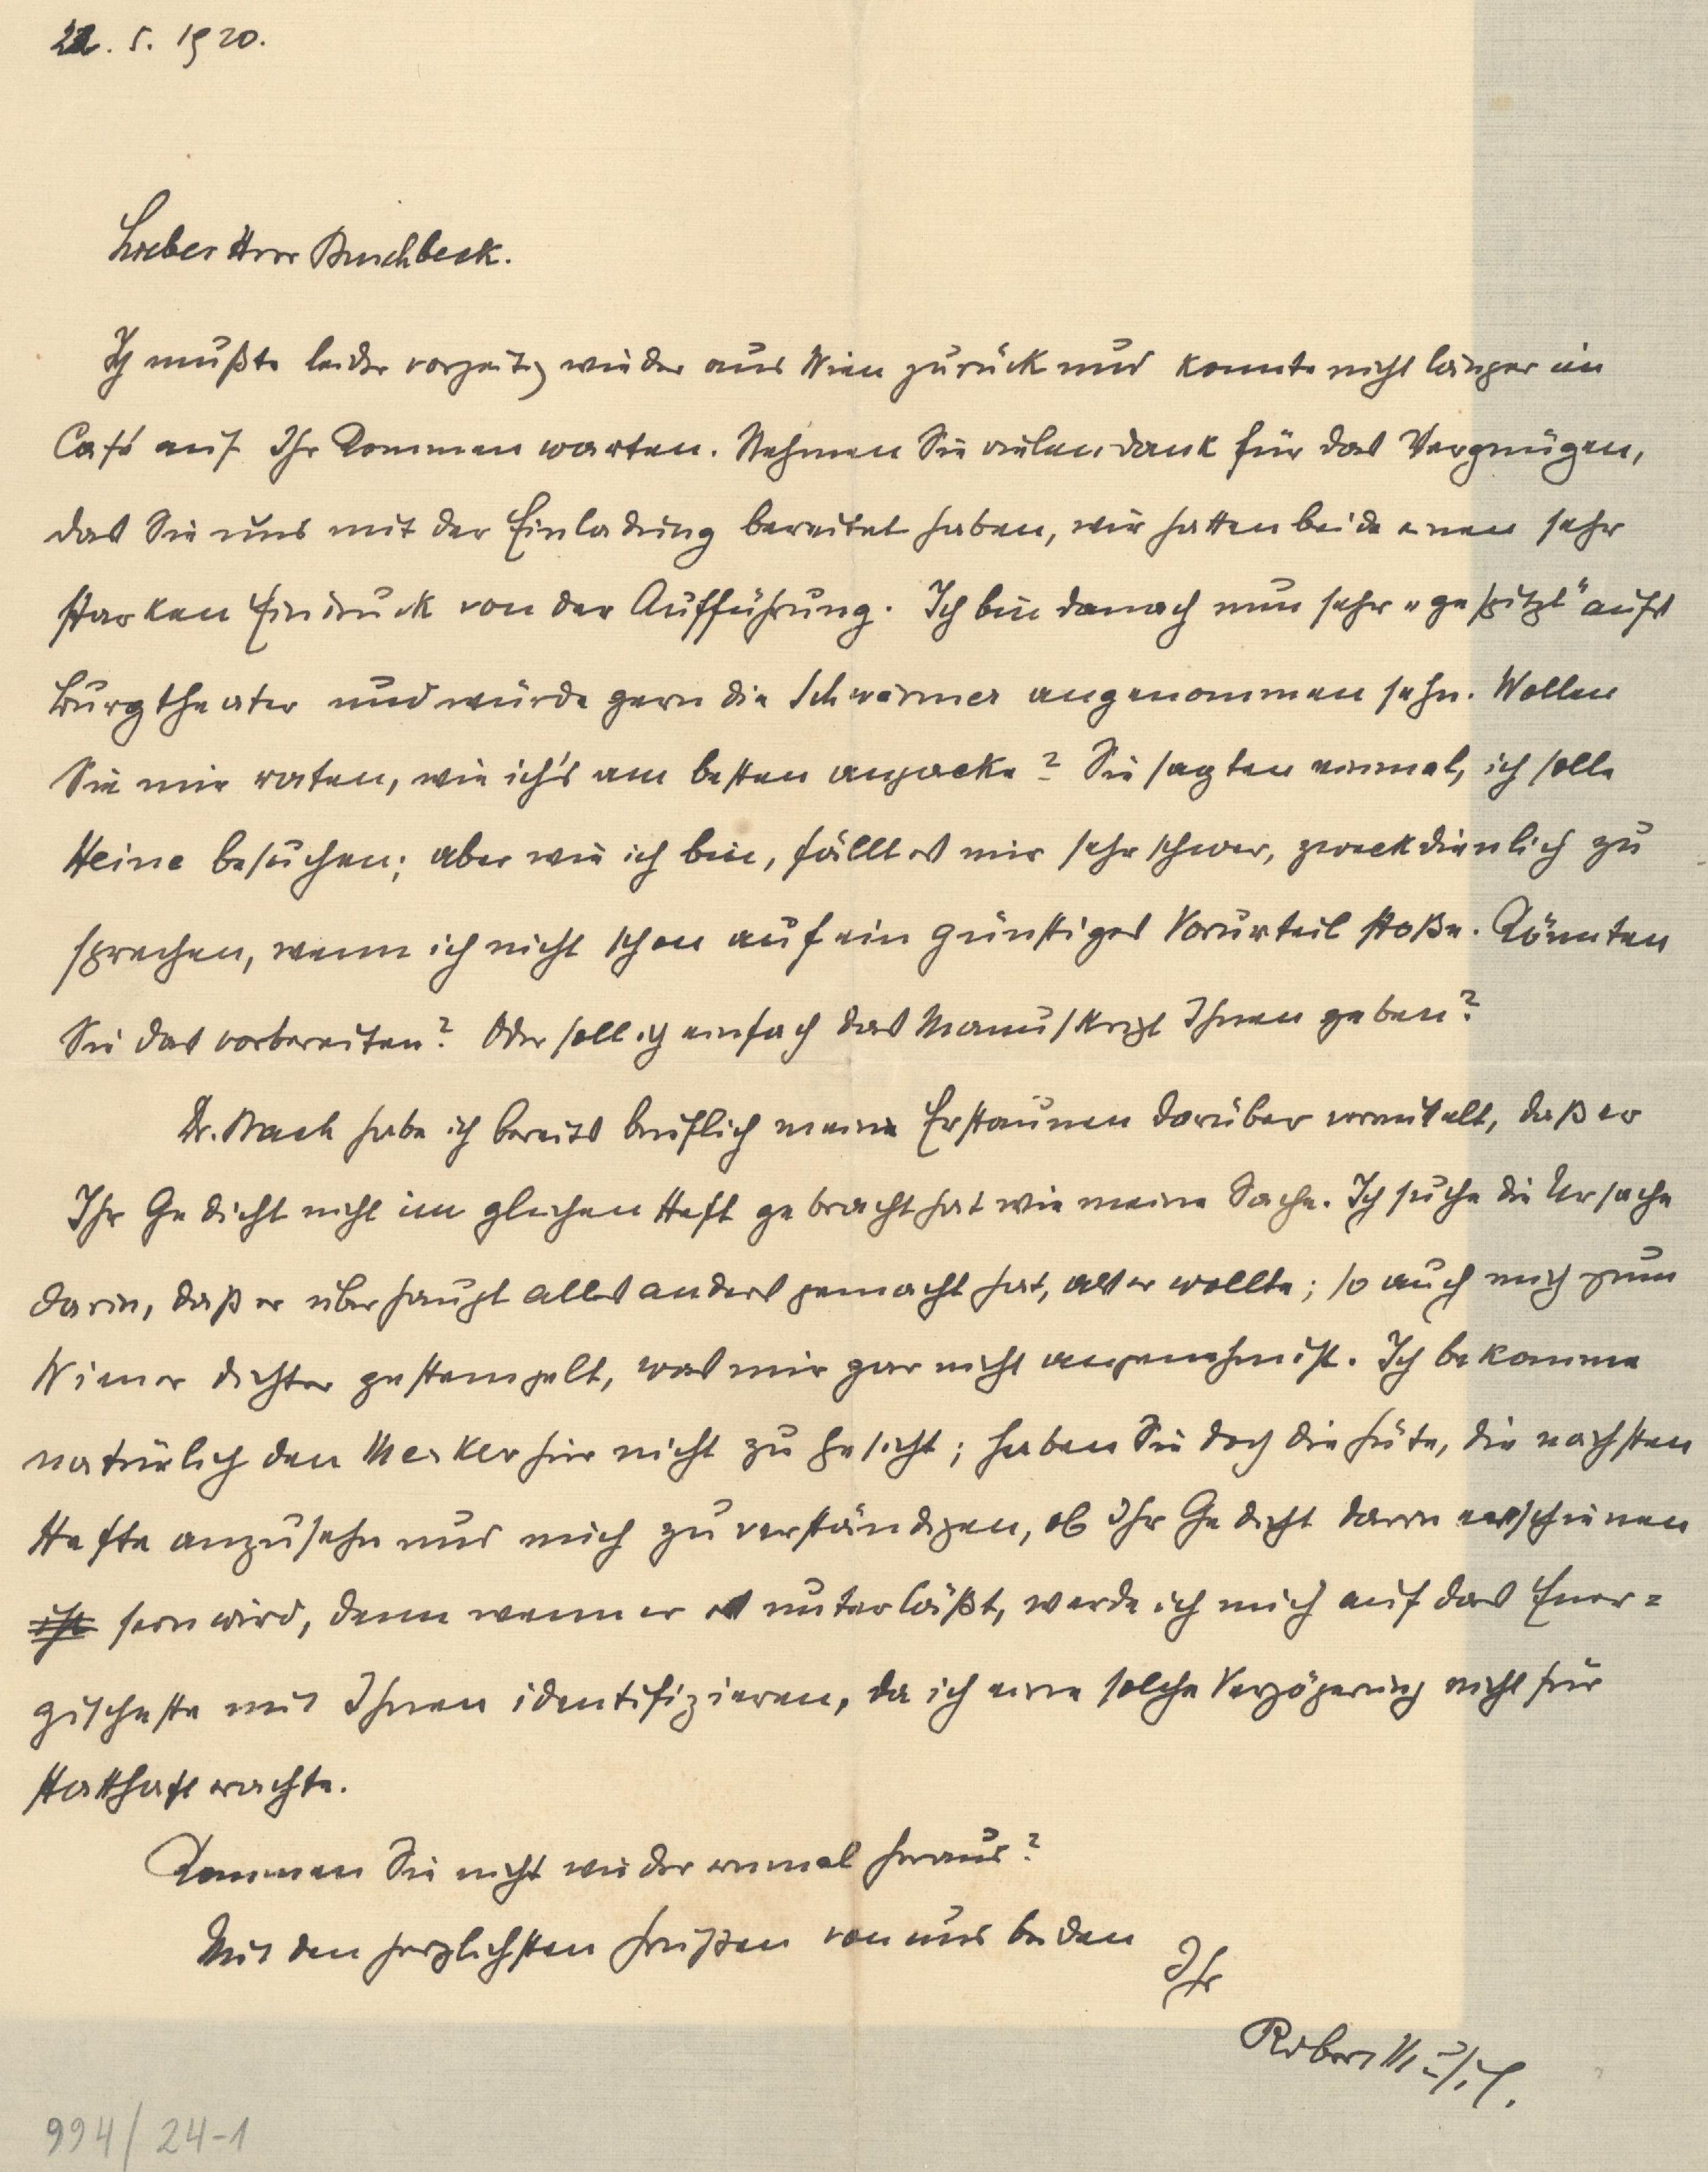 22. 5. 1920.
Lieber Herr Buschbeck.
Ich mußte leider vorzeitig wieder aus Wien zurück und konnte nicht länger im
Café auf Ihr Kommen warten. Nehmen Sie vielen Dank für das Vergnügen,
das Sie uns mit der Einladung bereitet haben, wir hatten beide einen sehr
starken Eindruck von der Aufführung. Ich bin danach nun sehr „gespitzt“ aufs
Burgtheater und würde gern die Schwärmer angenommen sehn. Wollen
Sie mir raten, wie ich's am besten anpacke? Sie sagten einmal, ich solle
Heine besuchen; aber wie ich bin, fällt es mir sehr schwer, zweckdienlich zu
sprechen, wenn ich nicht schon auf ein günstiges Vorurteil stoße. Könnten
Sie das vorbereiten? Oder soll ich einfach das Manuskript Ihnen geben?
Dr. Bach habe ich bereits brieflich mein Erstaunen darüber vermittelt, daß er
Ihr Gedicht nicht im gleichen Heft gebracht hat wie meine Sache. Ich suche die Ursache
darin, daß er überhaupt alles anders gemacht hat, als er wollte; so auch mich zum
Wiener Dichter gestempelt, was mir gar nicht angenehm ist. Ich bekomme
natürlich den Merker hier nicht zu Gesicht; haben Sie doch die Güte, die nächsten
Hefte anzusehn und mich zu verständigen, ob Ihr Gedicht darin erschienen
ist sein wird, denn wenn er es unterläßt, werde ich mich auf das Ener=
gischeste mit Ihnen identifizieren, da ich eine solche Verzögerung nicht für
statthaft erachte.
Kommen Sie nicht wieder einmal heraus?
Mit den herzlichsten Grüßen von uns beiden
Ihr
Robert Musil.
994/24-1